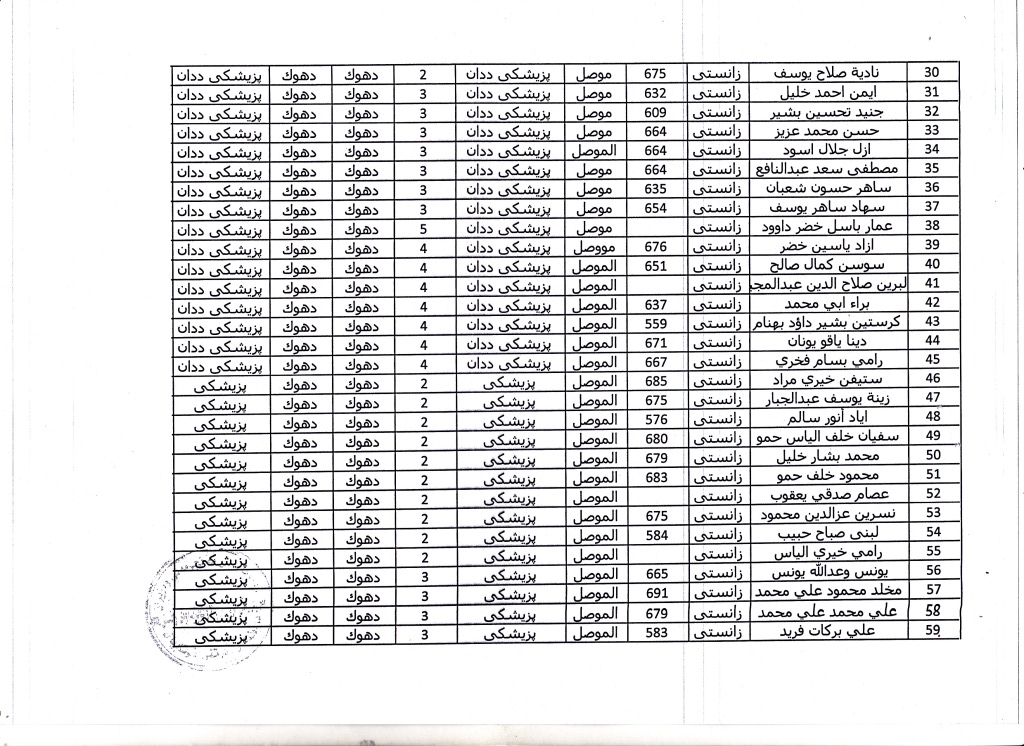 30 نادية صلاح يوسف زانستی 675 موصل پزیشکی ددان 2 دهوك دهوك پزیشکی ددان
31 ايمن احمد خليل زانستی 632 موصل پزیشکی ددان 3 دهوك دهوك پزیشکی ددان
32 جنيد تحسين بشير زانستی 609 موصل پزیشکی ددان 3 دهوك دهوك پزیشکی ددان
33 حسن محمد عزيز زانستی 664 موصل پزیشکی ددان 3 دهوك دهوك پزیشکی ددان
34 ازل جلال اسود زانستی 664 الموصل پزیشکی ددان 3 دهوك دهوك پزیشکی ددان
35 مصطفى سعد عبدالنافع زانستی 664 موصل پزیشکی ددان 3 دهوك دهوك پزیشکی ددان
36 ساهر حسون شعبان زانستی 635 موصل پزیشکی ددان 3 دهوك دهوك پزیشکی ددان
37 سهاد ساهر يوسف زانستی 654 موصل پزیشکی ددان 3 دهوك دهوك پزیشکی ددان
38 عمار باسل خضر داوود زانستی موصل پزیشکی ددان 5 دهوك دهوك پزیشکی ددان
39 ازاد ياسين خضر زانستی 676 مووصل پزیشکی ددان 4 دهوك دهوك پزیشکی ددان
40 سوسن كمال صالح زانستی 651 الموصل پزیشکی ددان 4 دهوك دهوك پزیشکی ددان
41 لبرين صلاح الدين عبدالمجي زانستی الموصل پزیشکی ددان 4 دهوك دهوك پزیشکی ددان
42 براء ابي محمد زانستی 637 الموصل پزیشکی ددان 4 دهوك دهوك پزیشکی ددان
43 كرستين بشير داؤد بهنام زانستی 559 الموصل پزیشکی ددان 4 دهوك دهوك پزیشکی ددان
44 دينا ياقو يونان زانستی 671 الموصل پزیشکی ددان 4 دهوك دهوك پزیشکی ددان
45 رامي بسام فخري زانستی 667 الموصل پزیشکی ددان 4 دهوك دهوك پزیشکی ددان
46 ستيفن خيري مراد زانستی 685 الموصل پزیشکی 2 دهوك دهوك پزیشکی
47 زينة يوسف عبدالجبار زانستی 675 الموصل پزیشکی 2 دهوك دهوك پزیشکی
48 اياد أنور سالم زانستی 576 الموصل پزیشکی 2 دهوك دهوك پزیشکی
49 سفيان خلف الياس حمو زانستی 680 الموصل پزیشکی 2 دهوك دهوك پزیشکی
50 محمد بشار خليل زانستی 679 الموصل پزیشکی 2 دهوك دهوك پزیشکی
51 محمود خلف حمو زانستی 683 الموصل پزیشکی 2 دهوك دهوك پزیشکی
52 عصام صدقي يعقوب زانستی الموصل پزیشکی 2 دهوك دهوك پزیشکی
53 نسرين عزالدين محمود زانستی 675 الموصل پزیشکی 2 دهوك دهوك پزیشکی
54 لبنى صباح حبيب زانستی 584 الموصل پزیشکی 2 دهوك دهوك پزیشکی
55 رامي خيري الياس زانستی الموصل پزیشکی 2 دهوك دهوك پزیشکی
56 يونس وعدالله يونس زانستی 665 الموصل پزیشکی 3 دهوك دهوك پزیشکی
57 مخلد محمود علي محمد زانستی 691 الموصل پزیشکی 3 دهوك دهوك پزیشکی
58 علي محمد علي محمد زانستی 679 الموصل پزیشکی 3 دهوك دهوك پزیشکی
59 علي بركات فريد زانستی 583 الموصل پزیشکی 3 دهوك دهوك پزیشکی